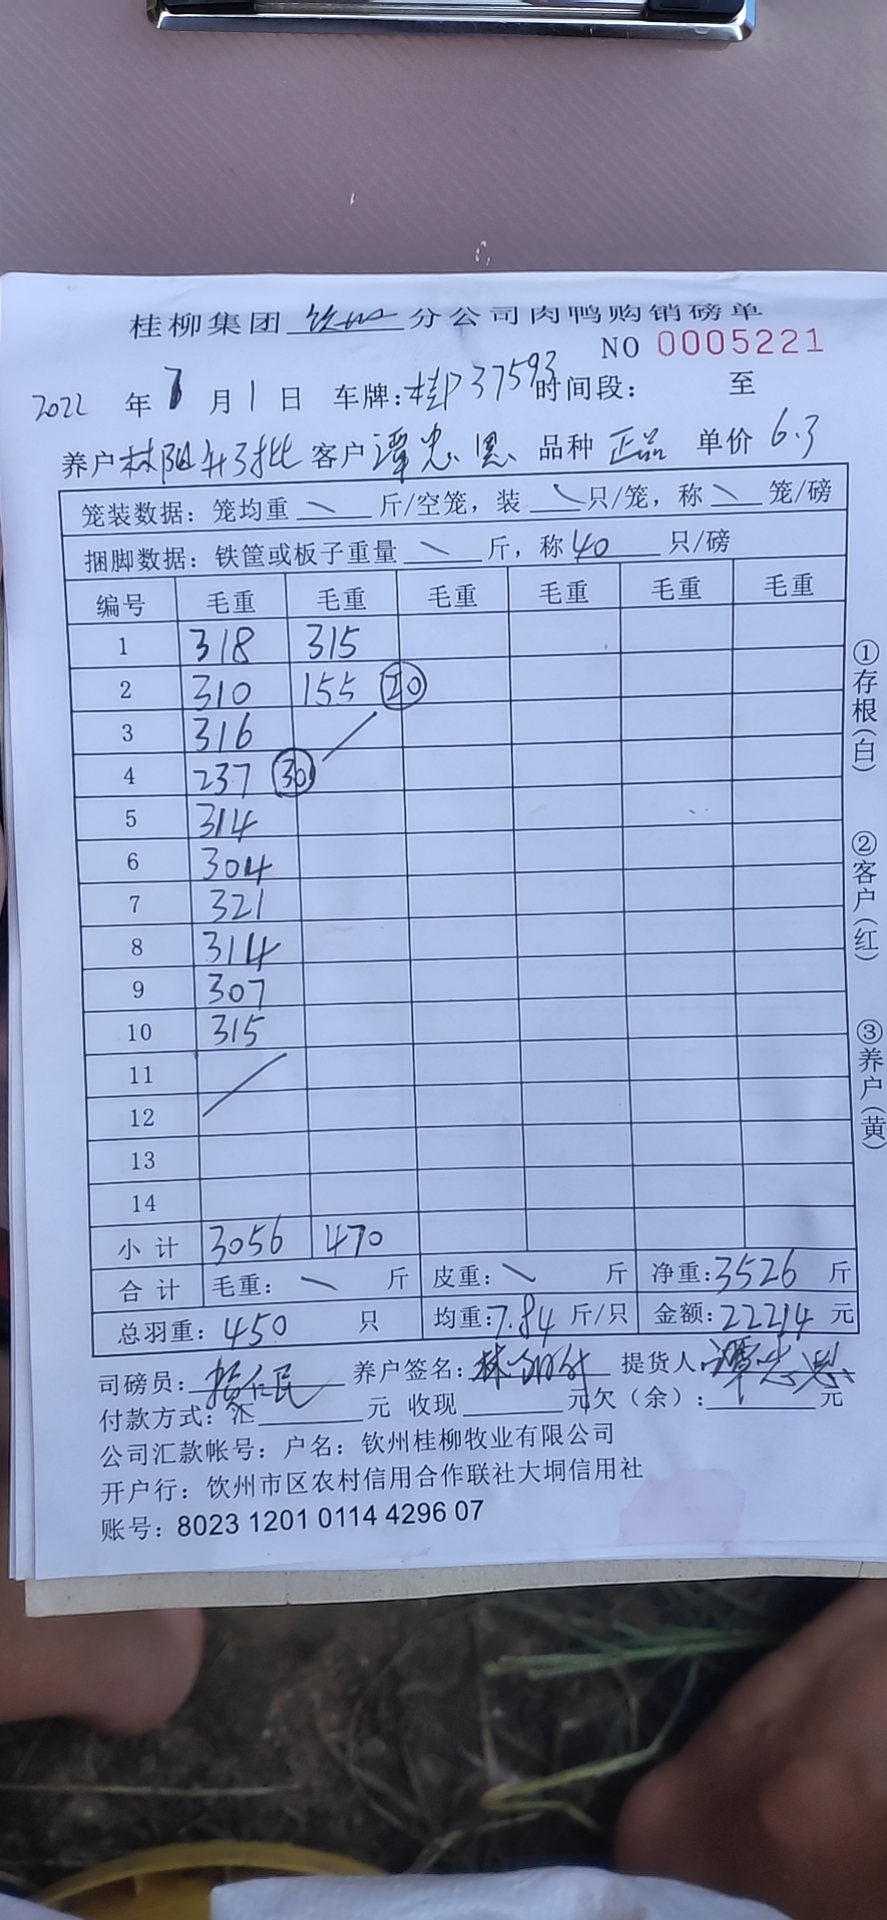 桂柳集团 钦州 分公司肉鸭购销磅单
NO 0005221
2022 年 7 月 1 日 车牌：桂P37593 时间段： 至
养户 林阳升3批 客户 谭忠恩 品种 正品 单价 6.3
笼装数据：笼均重 \ 斤/空笼，装 \ 只/笼，称 \ 笼/磅
捆脚数据：铁筐或板子重量 \ 斤，称 40 只/磅
编号 毛重 毛重 毛重 毛重 毛重 毛重
1 318 315
2 310 155 20
3 316
4 237 30
5 314
6 304
7 321
8 314
9 307
10 315
11
12
13
14
小计 3056 470
合计 毛重： \ 斤 皮重： \ 斤 净重：3526 斤
总羽重：450 只 均重：7.84 斤/只 金额：22214 元
司磅员： 养户签名：林 提货人：谭忠恩
付款方式：汇 元 收现 元 欠（余）： 元
公司汇款帐号：户名：钦州桂柳牧业有限公司
开户行：钦州市区农村信用合作联社大垌信用社
账号：8023 1201 0114 4296 07
①存根（白）
②客户（红）
③养户（黄）